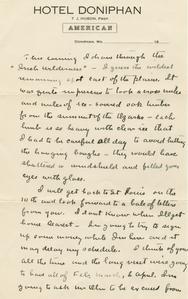 HOTEL DONIPHAN
T. J. HOBSON, PROP.
AMERICAN
Doniphan, Mo. 19
This evening I drove through the
"Irish Wilderness" – I guess the wildest
remaining spot east of the plains. It
was quite impressive to look across miles
and miles of ice-covered oak timber
from the summit of the Ozarks – each
limb is so heavy with clear ice that
I had to be careful all day to avoid hitting
the hanging boughs – they would have
shattered a windshield and filled your
eyes with glass.
I will get back to St. Louis on the
10th and look forward to a bale of letters
from you. I don't know when I'll get
home dearest – Im going to try to sign
up some money while I'm here and it
may delay my schedule. I think of you
all the time and the long rest we're going
to have all of Feb, March, & April. I'm
going to ask McAllen to be excused from